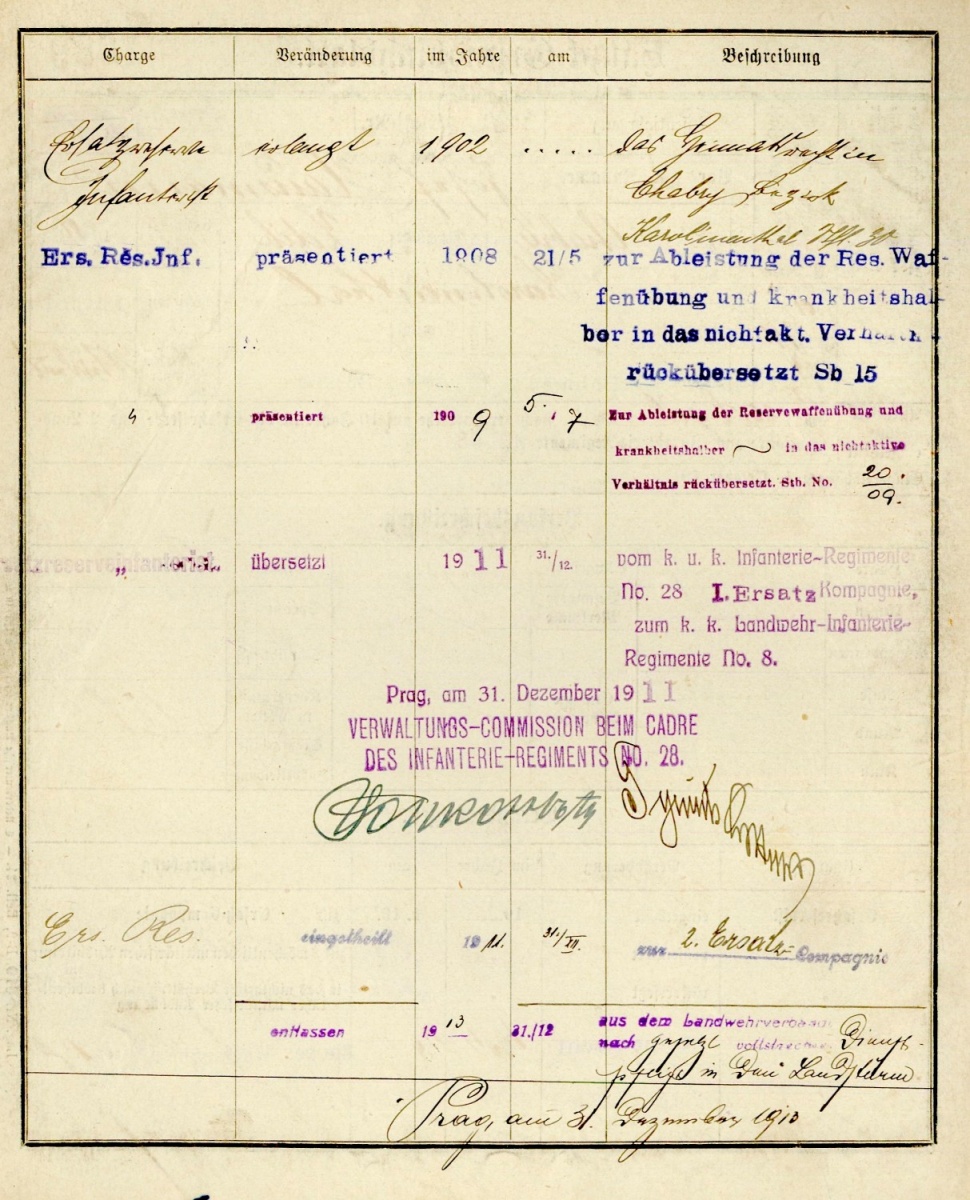 Charge Veränderung im Jahre am Beschreibung
Ersatzreserve erlangt 1902 ..... das Heimatsrecht in
Infanterist Chabry Bezirk
Karolinenthal
Ers. Res. Inf. präsentiert 1908 21/5 zur Ableistung der Res. Waf-
fenübung und krankheitshal-
ber in das nichtakt. Verhältn.
rückübersetzt Sb 15
" präsentiert 1909 5./7 Zur Ableistung der Reservewaffenübung und
krankheitshalber in das nichtaktive
Verhältnis rückübersetzt. Stb. No. 20/09.
„ übersetzt 1911 31./12. vom k. u. k. Infanterie-Regimente
No. 28 I. Ersatz Kompagnie,
zum k. k. Landwehr-Infanterie-
Regimente No. 8.
Prag, am 31. Dezember 1911
VERWALTUNGS-COMMISSION BEIM CADRE
DES INFANTERIE-REGIMENTS NO. 28.
Ers. Res. eingetheilt 1911. 31./XII. zur 2. Ersatz-Compagnie
entlassen 1913 31./12 aus dem Landwehrverbande
nach gesetzl vollstreckter Dienst-
pflicht in den Landsturm
Prag, am 31. Dezember 1913